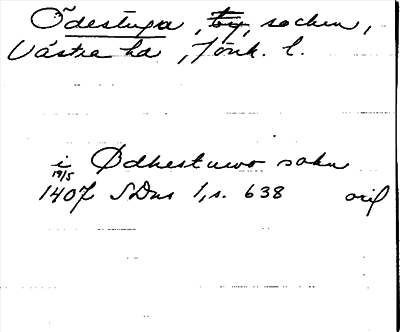 Ödestuga, by, socken,
Västra hd, Jönk. l.
i Ødhestuwo sokn
19/5
1407 SDns 1, s. 638 orig